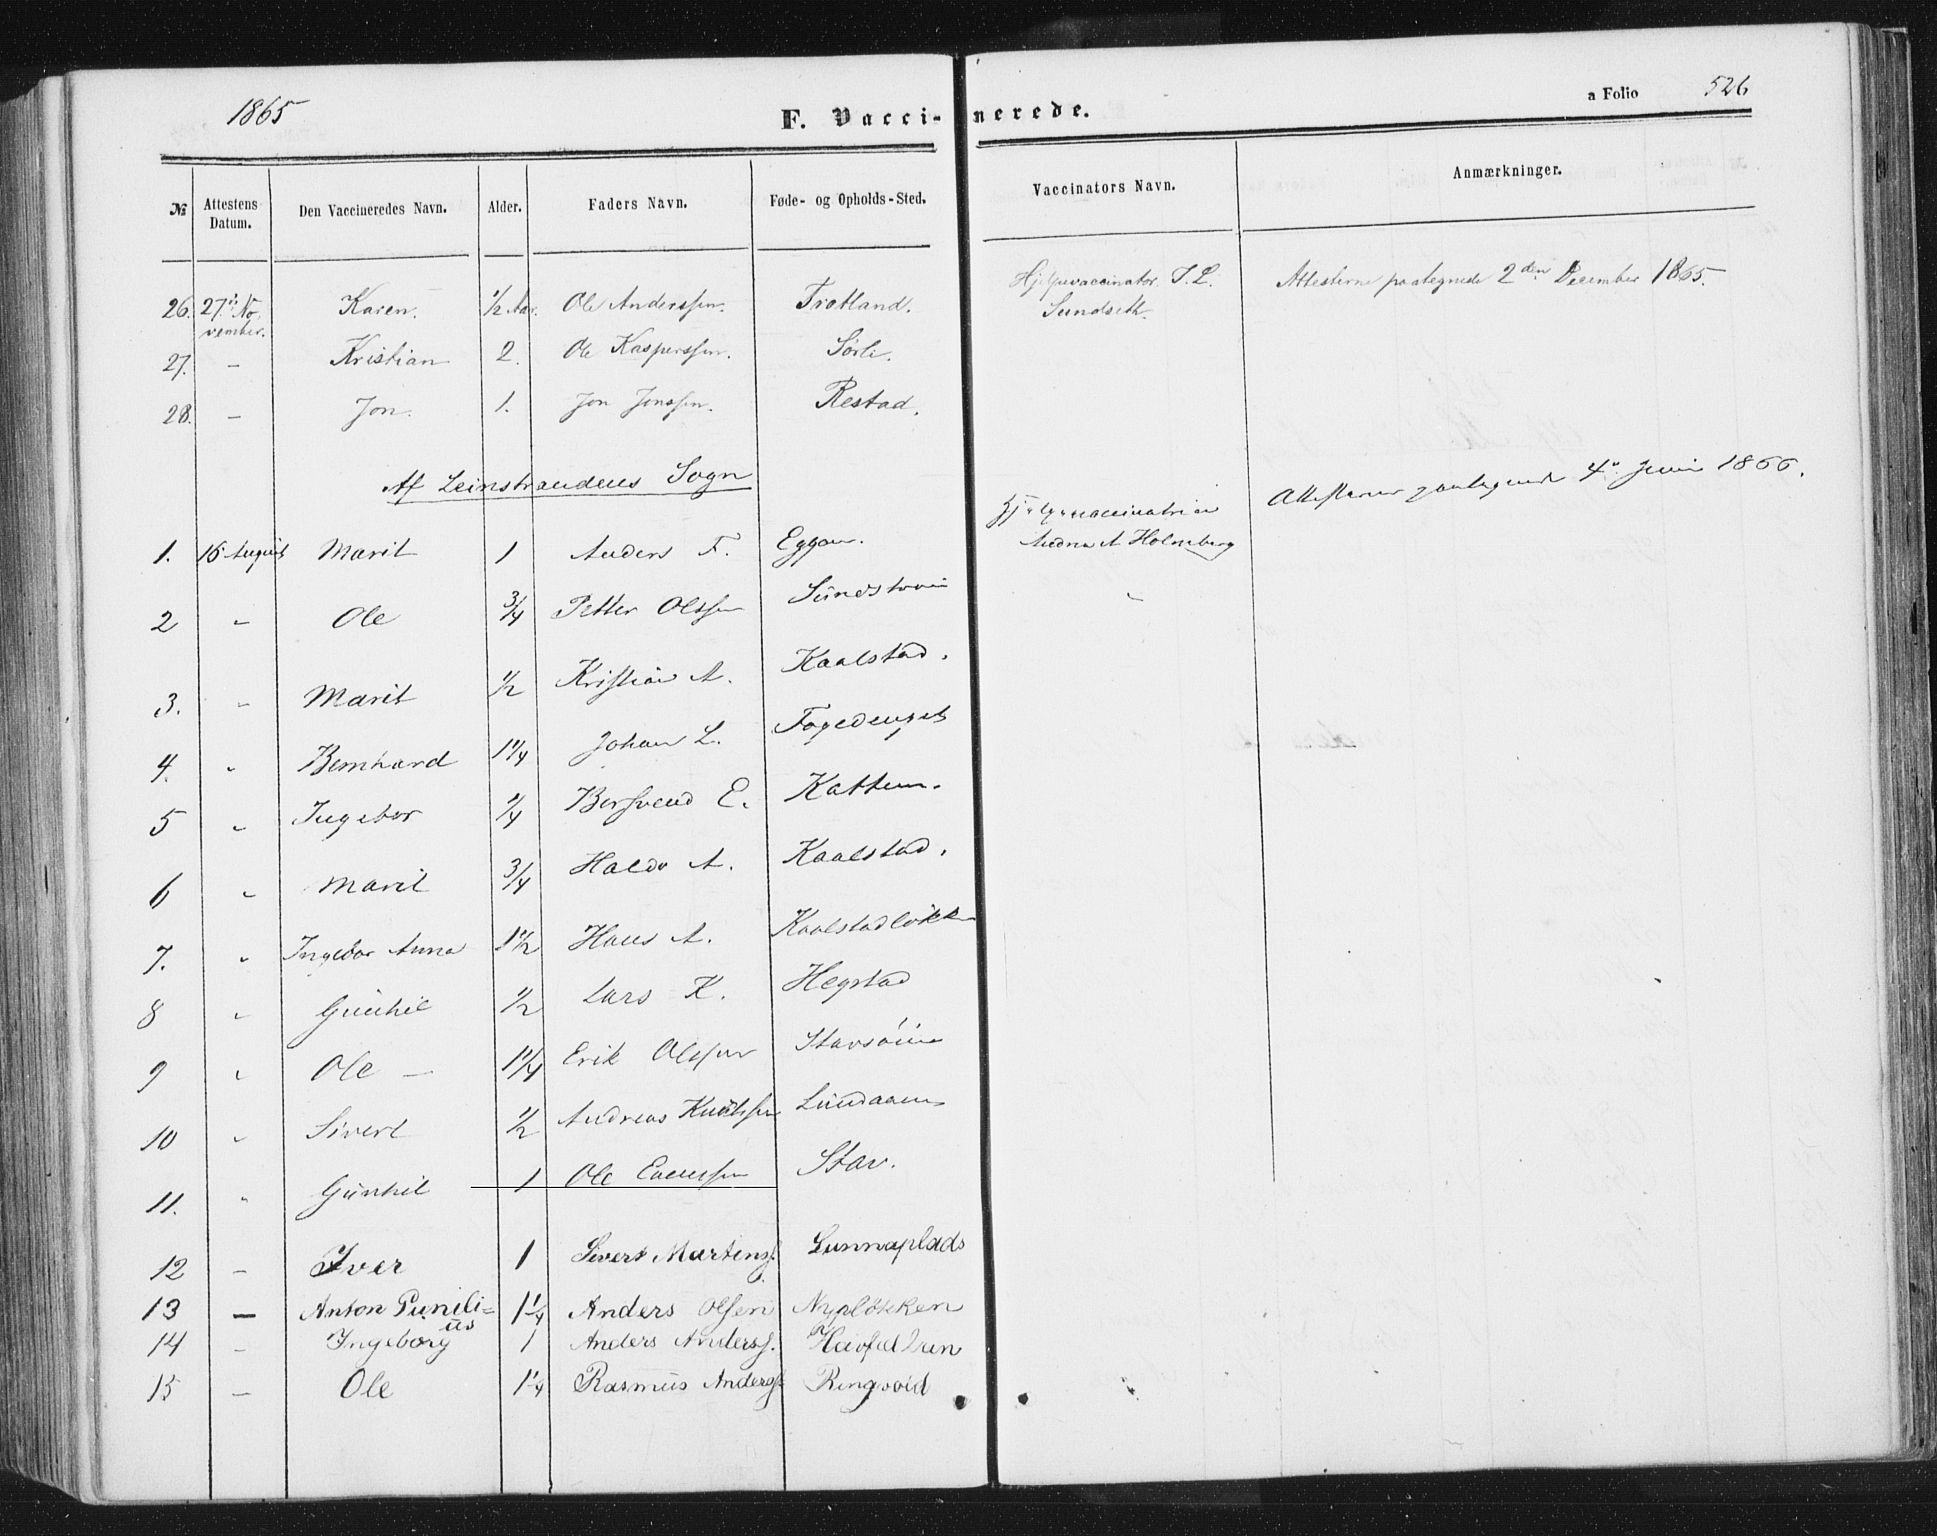 1865
F. Vacci-nerede.
a Folio 526
№ Attestens Datum. Den Vaccineredes Navn. Alder. Faders Navn. Føde- og Opholds-Sted. Vaccinators Navn. Anmærkninger.
26. 27. November. Karen. 1/2 Aar. Ole Anderssen. Trotland. Hjelpevaccinator. Sundseth. Attesterne paategnede 2den December 1865.
27. – Kristian 2. Ole Kasperssen. Sörli.
28. – Jon. 1. Jon Jonssen. Restad.
Af Leinstrandens Sogn
1. 16 August Marit 1 Anders F. Eggan. Hjelpevaccinatrice A Holmberg Attesterne paategnede 4. Juni 1866.
2 " Ole 3/4 Petter Olssen "
3. " Marit 1/2 Kristian A. Kaalstad.
4. " Bernhard 1 1/4 Johan L. Fogedenget
5 " Ingebor 1/4 Bersvend E. Kattem.
6 " Marit 3/4 Haldo A. Kaalstad.
7. " Ingebor Anna 1 1/2 Hans A. Kaalstadlökken
8 " Gunhil 1/2 Lars K. Hegstad
9 " Ole – 1 1/4 Erik Olssen
10 " Sivert 1/2 Andreas Knutssen
11. " Gunhil 1 Ole Stav.
12 – Iver 1 Sivert Martens. Sunnaplads
13 – Anton Punilius 1 1/4 Anders Olsen Nyplösken
14 – Ingeborg 1 Anders Anderss.
15 – Ole 1 1/4 Rasmus Anderss. Ringsvid